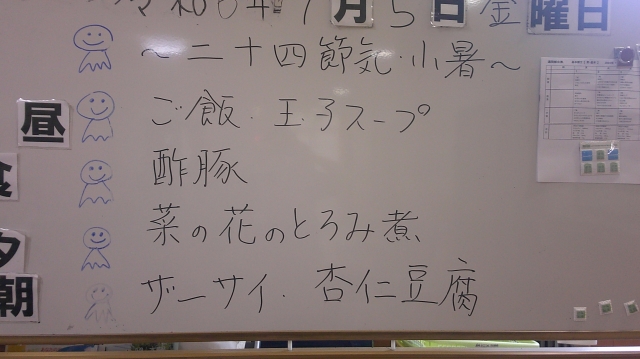 令和6年7月5日金曜日
~二十四節気・小暑~
昼 ご飯・玉子スープ
食 酢豚
夕 菜の花のとろみ煮
朝 ザーサイ・杏仁豆腐